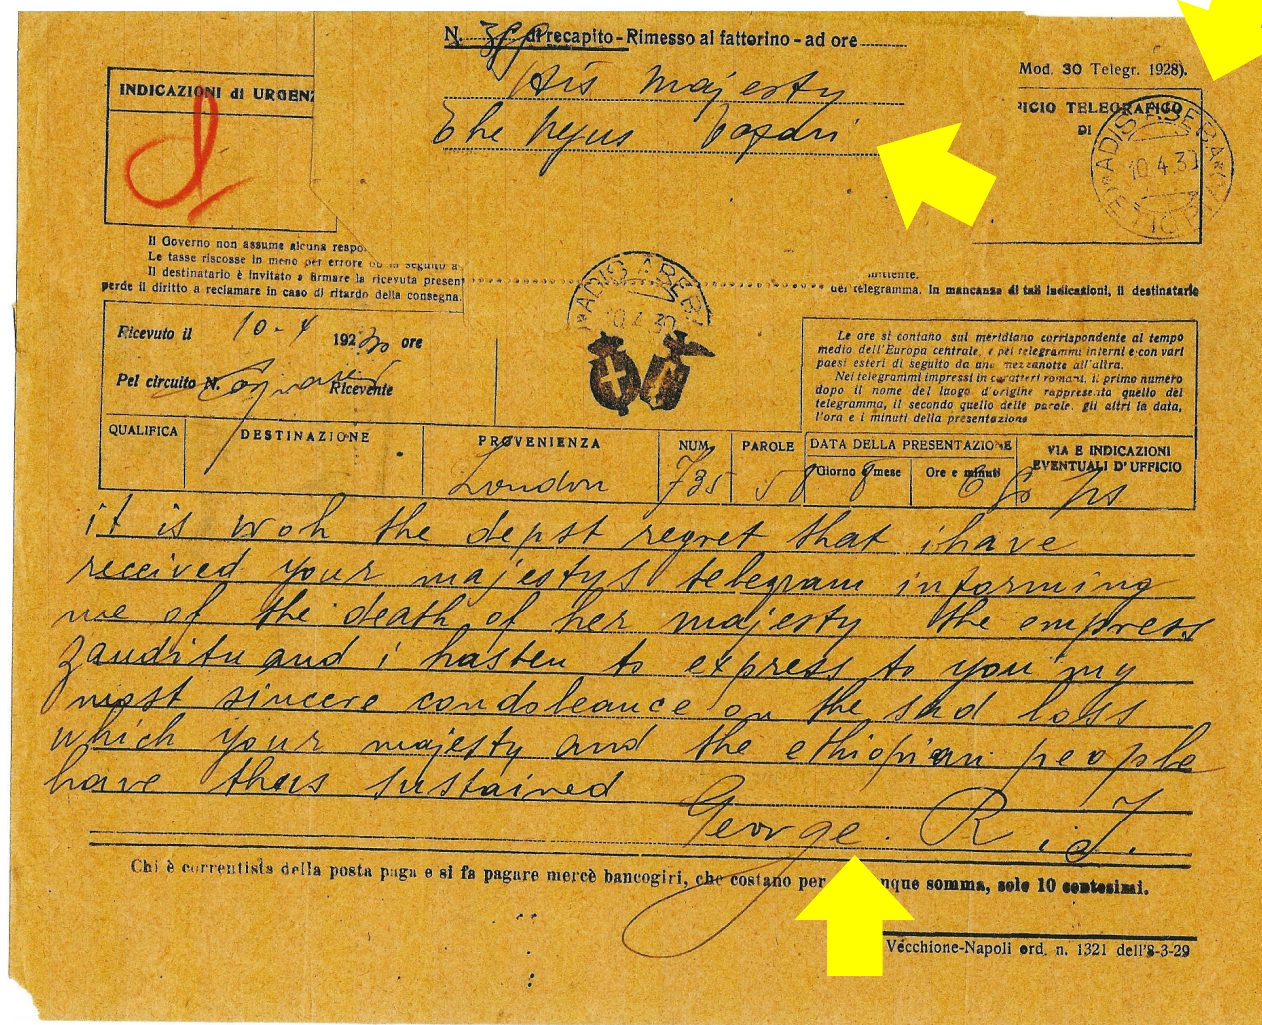 N. di recapito - Rimesso al fattorino - ad ore
His Majesty
The Negus
Mod. 30 Telegr. 1928).
INDICAZIONI di URGENZ
FICIO TELEGRAFICO
DI
ADIS ABEBA
10.4.30
Il Governo non assume alcuna respo
Le tasse riscosse in meno per errore od in seguito a
Il destinatario è invitato a firmare la ricevuta presen
mittente.
perde il diritto a reclamare in caso di ritardo della consegna.
del telegramma. In mancanza di tali indicazioni, il destinatario
ADIS ABEB
10.4.30
Ricevuto il 10-4 192 30 ore
Pel circuito N. Ricevente
Le ore si contano sul meridiano corrispondente al tempo
medio dell'Europa centrale, e pei telegrammi interni e con vari
paesi esteri di seguito da una mezzanotte all'altra.
Nei telegrammi impressi in caratteri romani, il primo numero
dopo il nome del luogo d'origine rappresenta quello del
telegramma, il secondo quello delle parole, gli altri la data,
l'ora e i minuti della presentazione
QUALIFICA DESTINAZIONE PROVENIENZA NUM. PAROLE DATA DELLA PRESENTAZIONE VIA E INDICAZIONI EVENTUALI D'UFFICIO
Giorno e mese Ore e minuti
London 735 58 8
it is woh the depst regret that i have
received your majestys telegram informing
me of the death of her majesty the empress
zauditu and i hasten to express to you my
most sincere condoleance on the sad loss
which your majesty and the ethiopian people
have thus sustained
George. R.I.
Chi è correntista della posta paga e si fa pagare mercè bancogiri, che costano per nque somma, solo 10 centesimi.
Vecchione-Napoli ord. n. 1321 dell'8-3-29